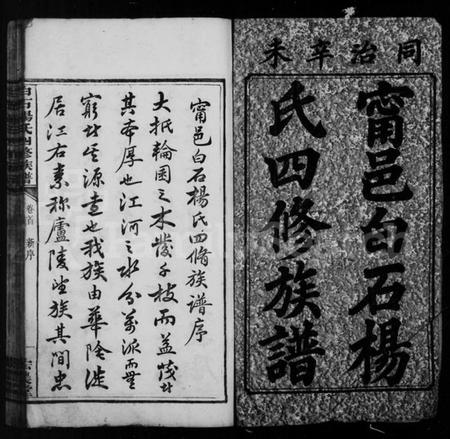 同治辛未
甯邑白石楊
氏四修族譜
甯邑白石楊氏四脩族譜序
大抵輪囷之木發千枝而益茂以
其本厚也江河之水分萬派而無
窮以其源遠也我族由華陰遷
居江右素稱廬陵望族其間忠
白石楊氏四修族譜
卷首
新序